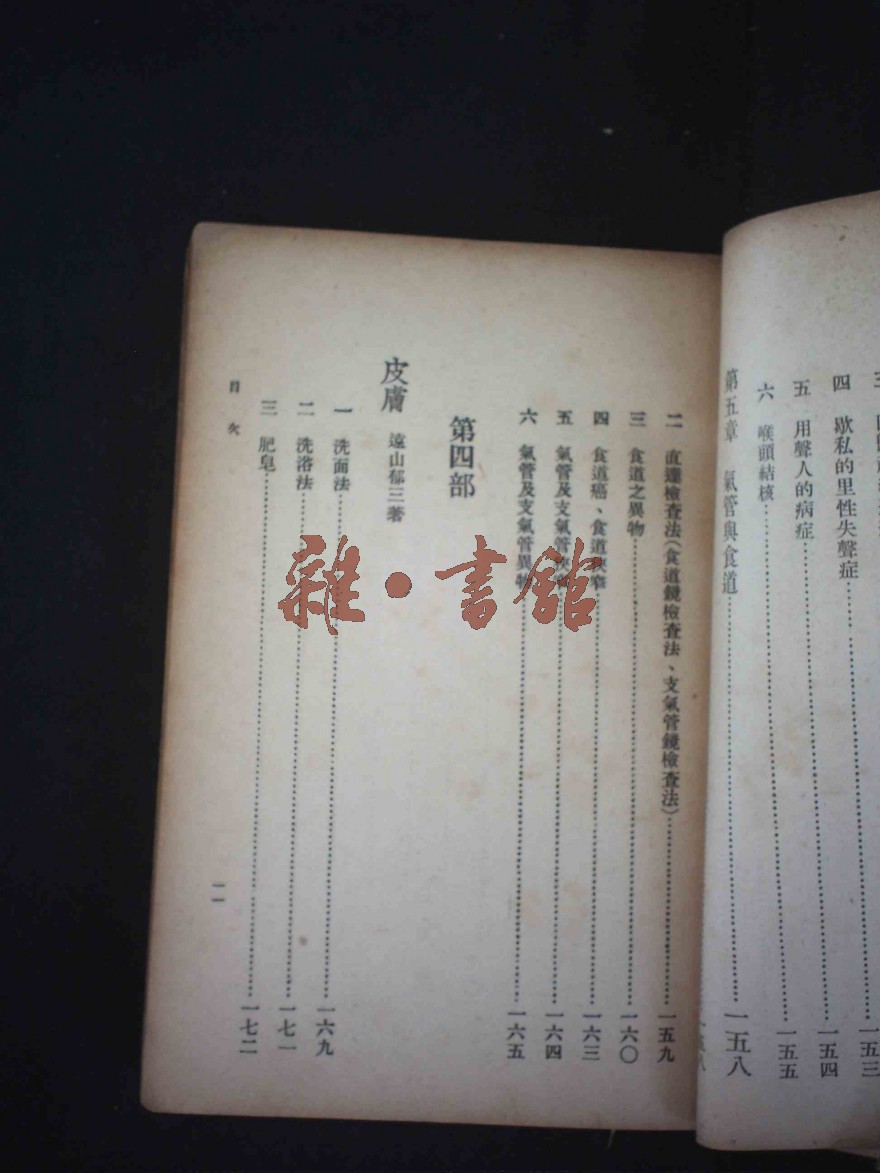 四 歇私的里性失聲症……一五四
五 用聲人的病症……一五五
六 喉頭結核
第五章 氣管與食道……一五八
二 直達檢查法(食道鏡檢查法、支氣管鏡檢查法)……一五九
三 食道之異物……一六〇
四 食道癌、食道狹窄……一六三
五 氣管及支氣管狹窄……一六四
六 氣管及支氣管異物……一六五
第四部
皮膚 遠山郁三著
一 洗面法……一六九
二 洗浴法……一七一
三 肥皂……一七二
目次
一一
雜·書館